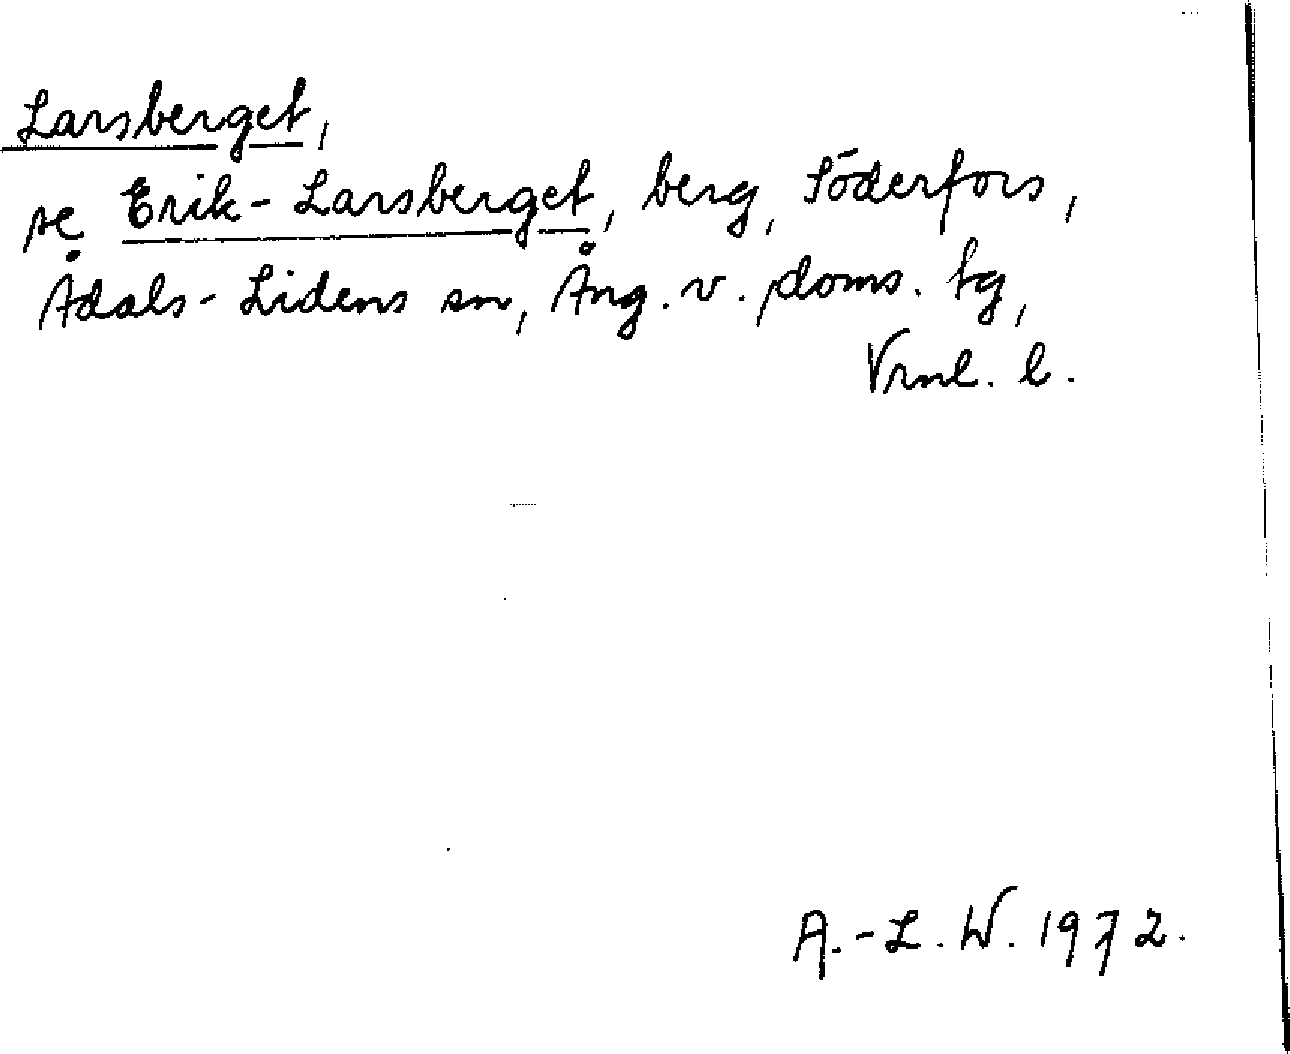 Larsberget,
se Erik-Larsberget, berg, Söderfors,
Ådals-Lidens sn, Ång. v. doms. tg,
Vrnl. l.
A.-L. W. 1972.